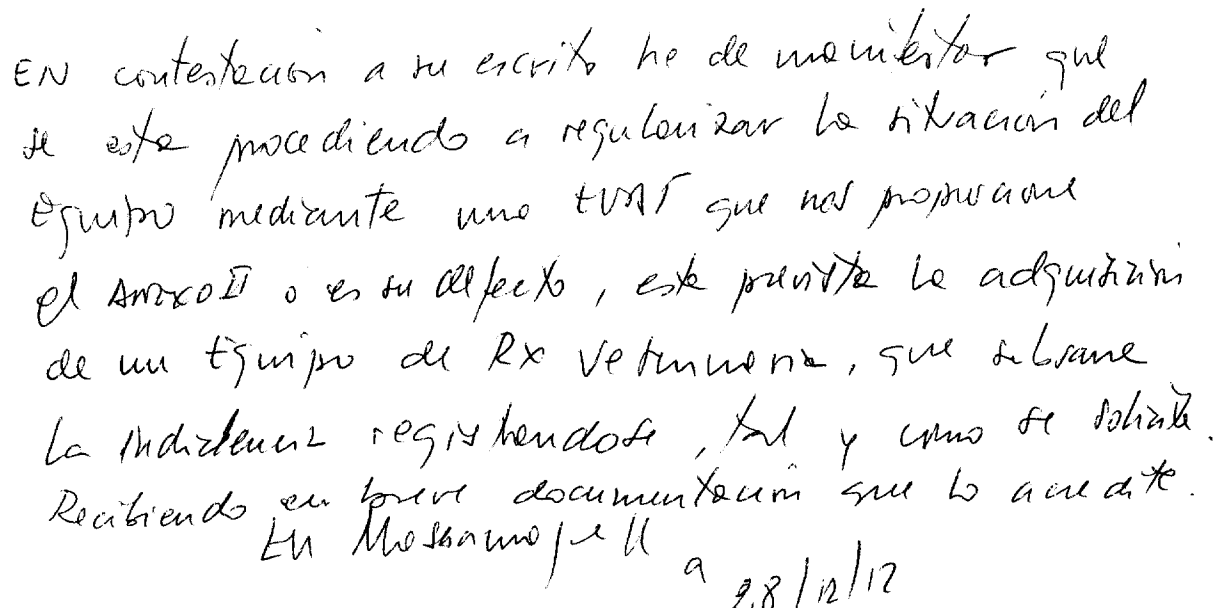 EN contestación a su escrito he de manifestar que
se esta procediendo a regularizar la situación del
Equipo mediante una EVAT que nos proporcione
el Anexo II o en su defecto, esta prevista la adquisición
de un Equipo de Rx Veterinaria, que subsane
la incidencia registrandose, tal y como se solicita.
Recibiendo en breve documentación que lo acredite.
En Massamagrell
a 28/12/12